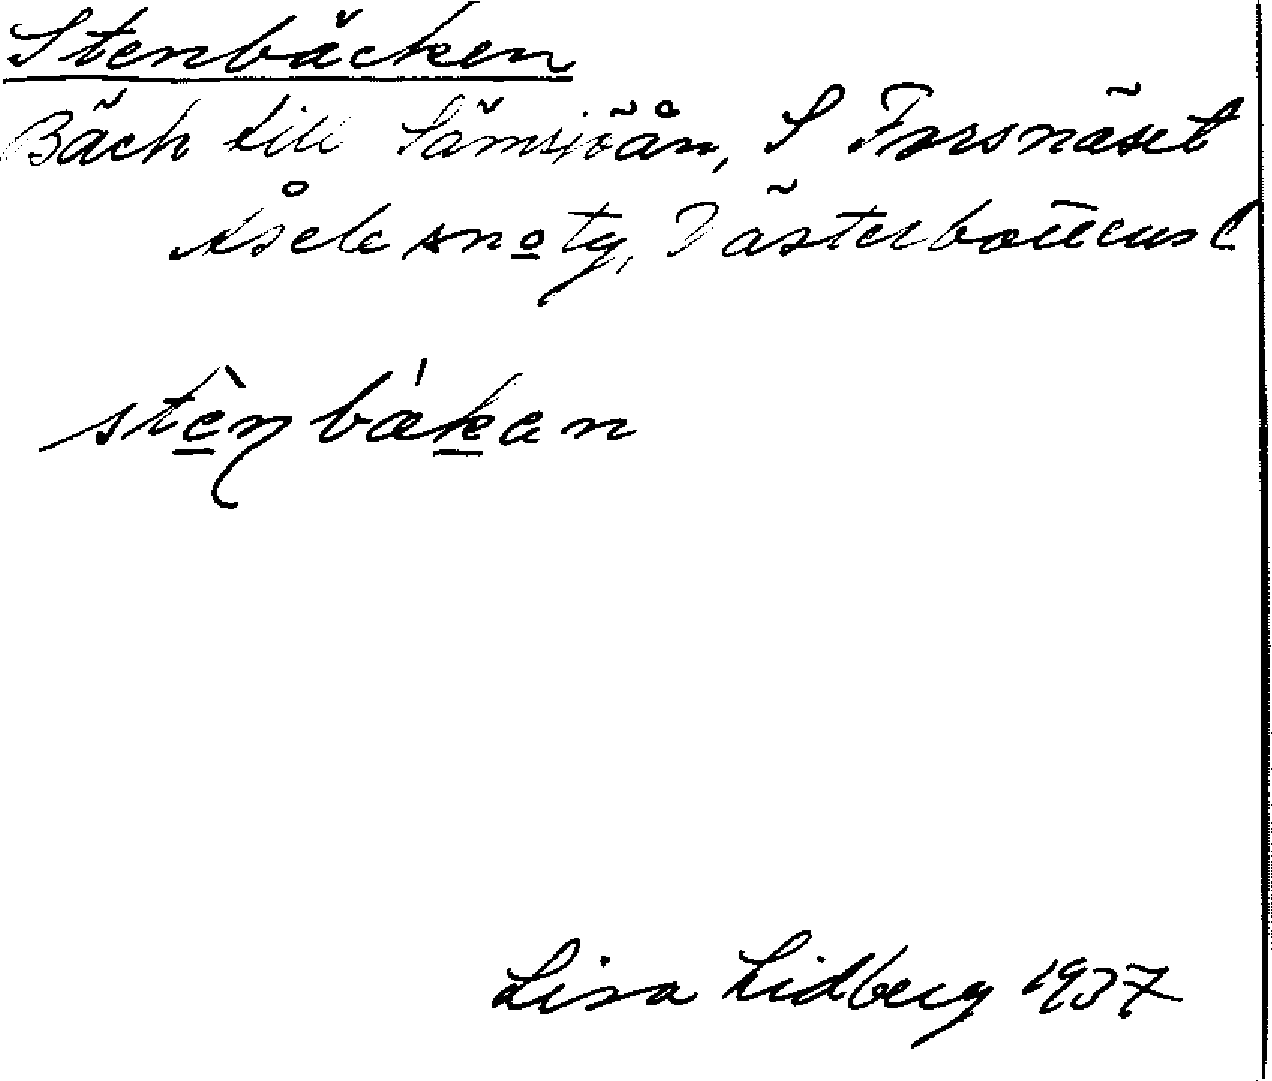 Stenbäcken
Bäck till Lämsjöån, S Forsnäset
Åsele sn o tg, Västerbottens l
stènbä́kan
Lisa Lidberg 1937